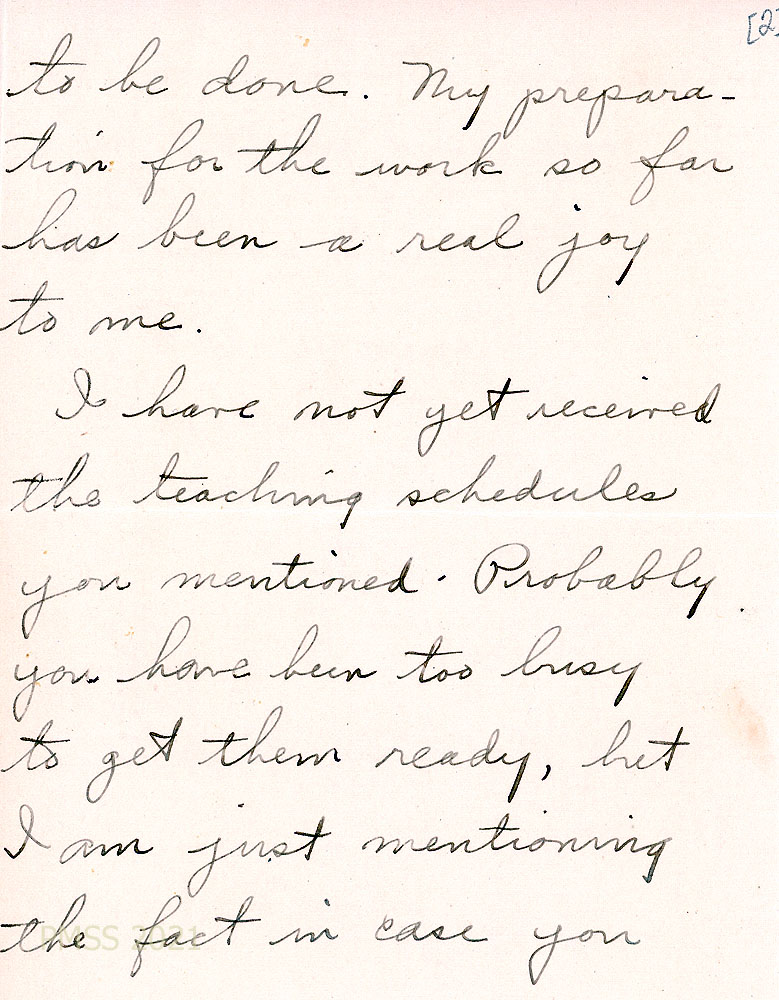 [2]
to be done. My prepara-
tion for the work so far
has been a real joy
to me.
I have not yet received
the teaching schedules
you mentioned. Probably
you have been too busy
to get them ready, but
I am just mentioning
the fact in case you
PMSS 2021